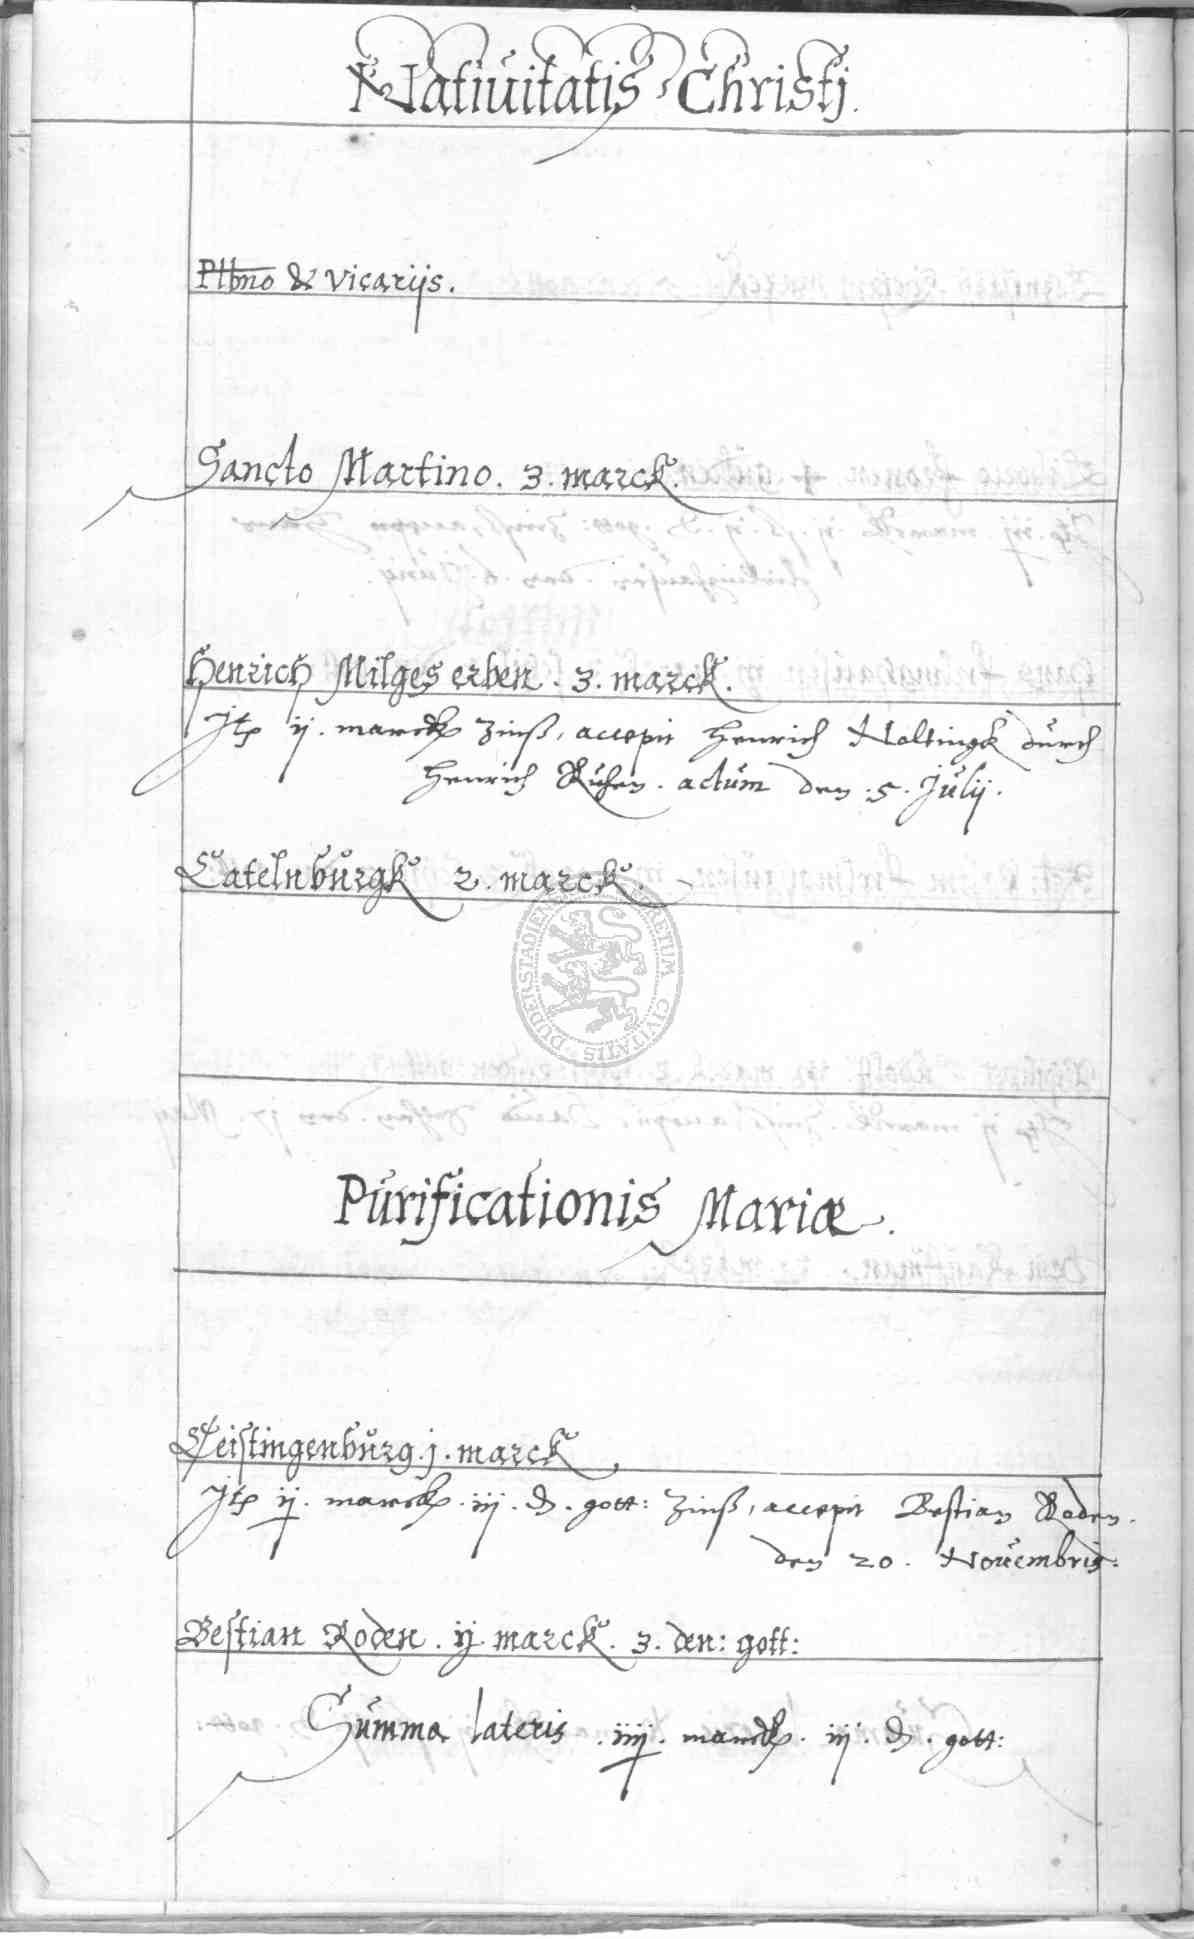 Natiuitatis Christj.
Plbno & vicarijs.
Sancto Martino. 3. marck.
Henrich Milges erben. 3. marck.
Jtp ij. marck Zinß, accepit Henrich Noltingk durch
Henrich Rusen. actum den .5. Julij.
Catelnburgk 2. marck.
SECRETUM CIVITATIS DUDERSTADIENSIS
Purificationis Mariæ.
Teistingenburg. j. marck
Jtp ij. marck. iij. d. gott: Zinß, accepit Bestian Roden.
den 20. Nouembris.
Bestian Roden. ij marck. 3. den: gott:
Summa lateris .iiij. marck. iij. d. gott: